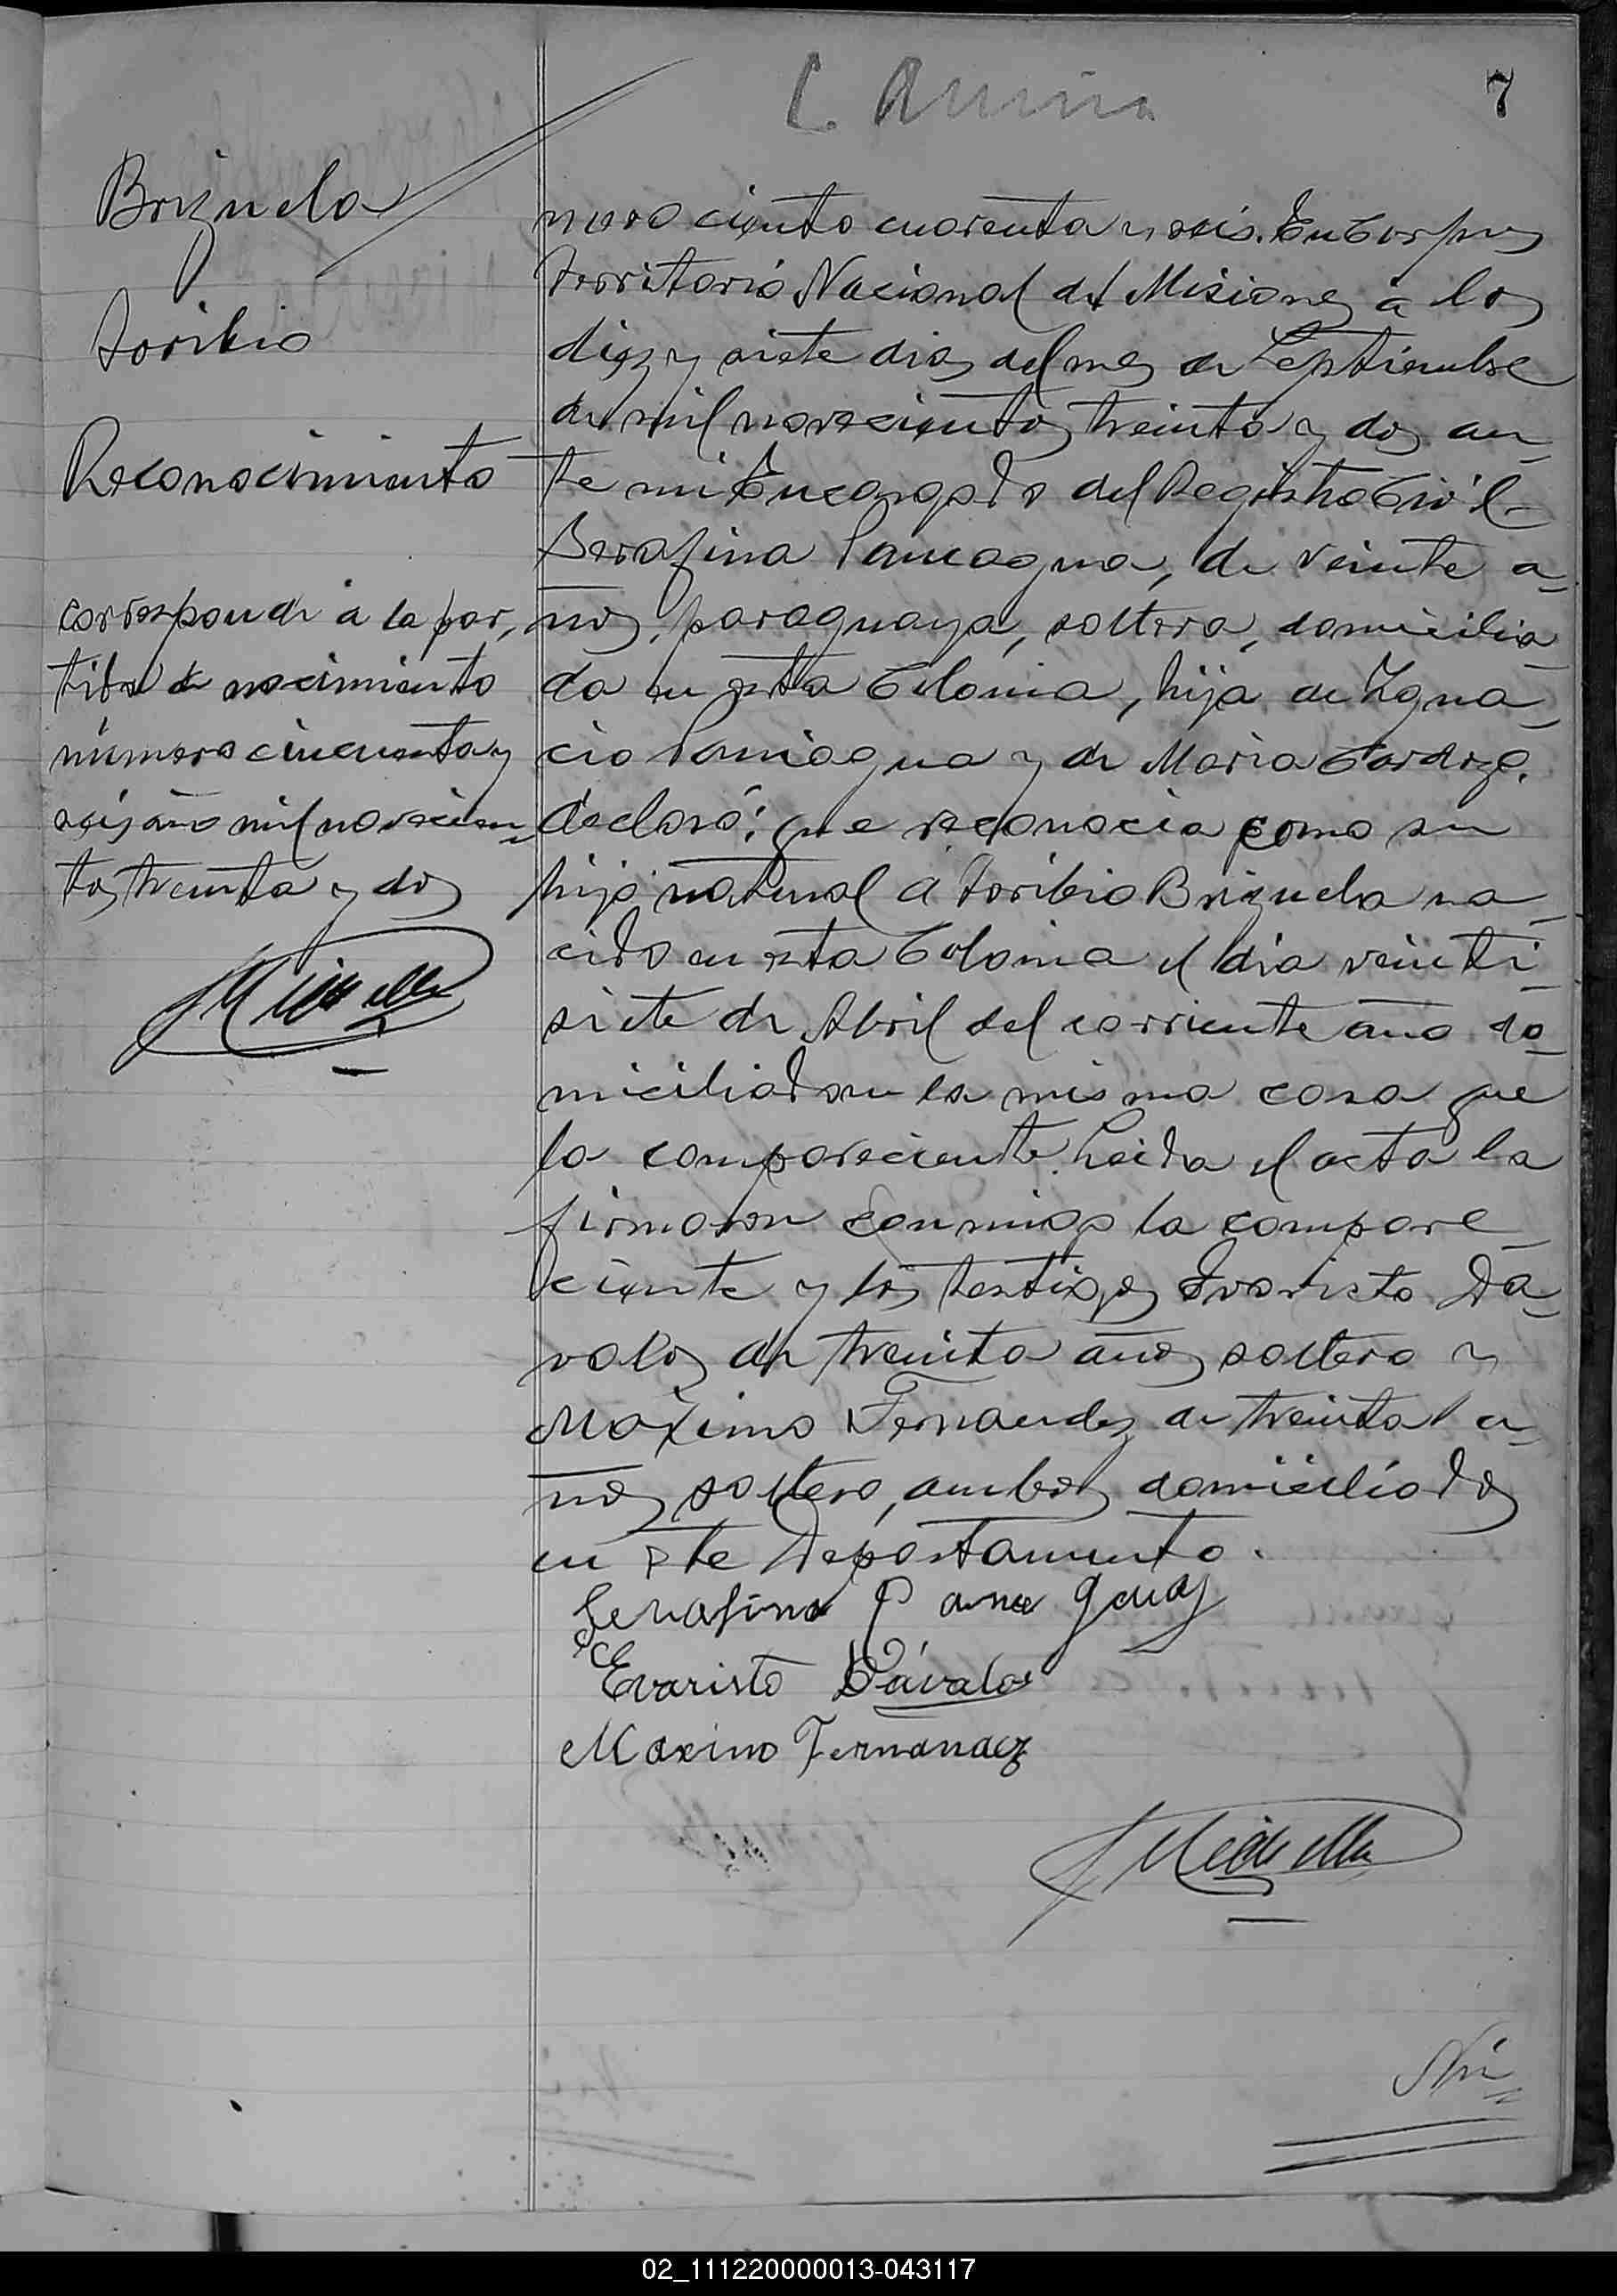 7
Brizuela
Toribio
Reconocimiento
corresponde á la par,
tida de nacimiento
número cincuenta y
seis año mil novecien
tos treinta y dos
mero ciento cuarenta y seis. En Corpus
Territorio Nacional de Misiones a los
diez y siete dias del mes de Septiembre
de mil novecientos treinta y dos an-
te mi Encargado del Registro Civil
Serafina Paniagua, de veinte a-
ños, paraguaya, soltera, domicilia-
da en esta Colonia, hija de Igna-
cio Paniagua y de Maria Cardozo.
declaró: que reconocia como su
hijo natural a Toribio Brizuela na-
cido en esta Colonia el dia veinti-
siete de Abril del corriente año do-
miciliado en la misma casa que
la compareciente. Leida el acta la
firmaron conmigo la compare-
ciente y los testigos Evaristo Da-
valos de treinta años soltero y
Máximo Fernandez de treinta a-
ños soltero, ambos domiciliados
en este Departamento.
Serafina
Evaristo Dávalos
Maximo Fernandez
Nú-
02_111220000013-043117